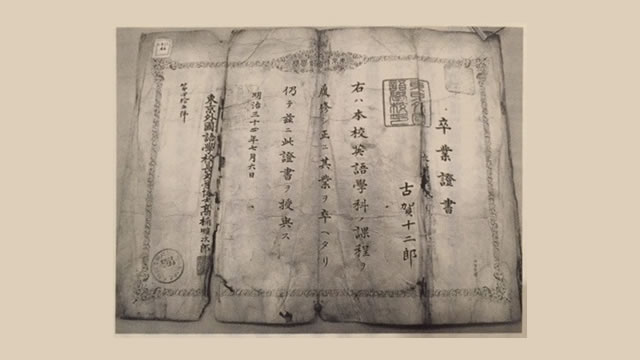 卒業證書
古賀十二郎
右ハ本校英語學科ノ課程ヲ
履修シ正ニ其業ヲ卒ヘタリ
仍テ茲ニ此證書ヲ授與ス
明治三十四年七月六日
東京外國語學校長
高楠順次郎